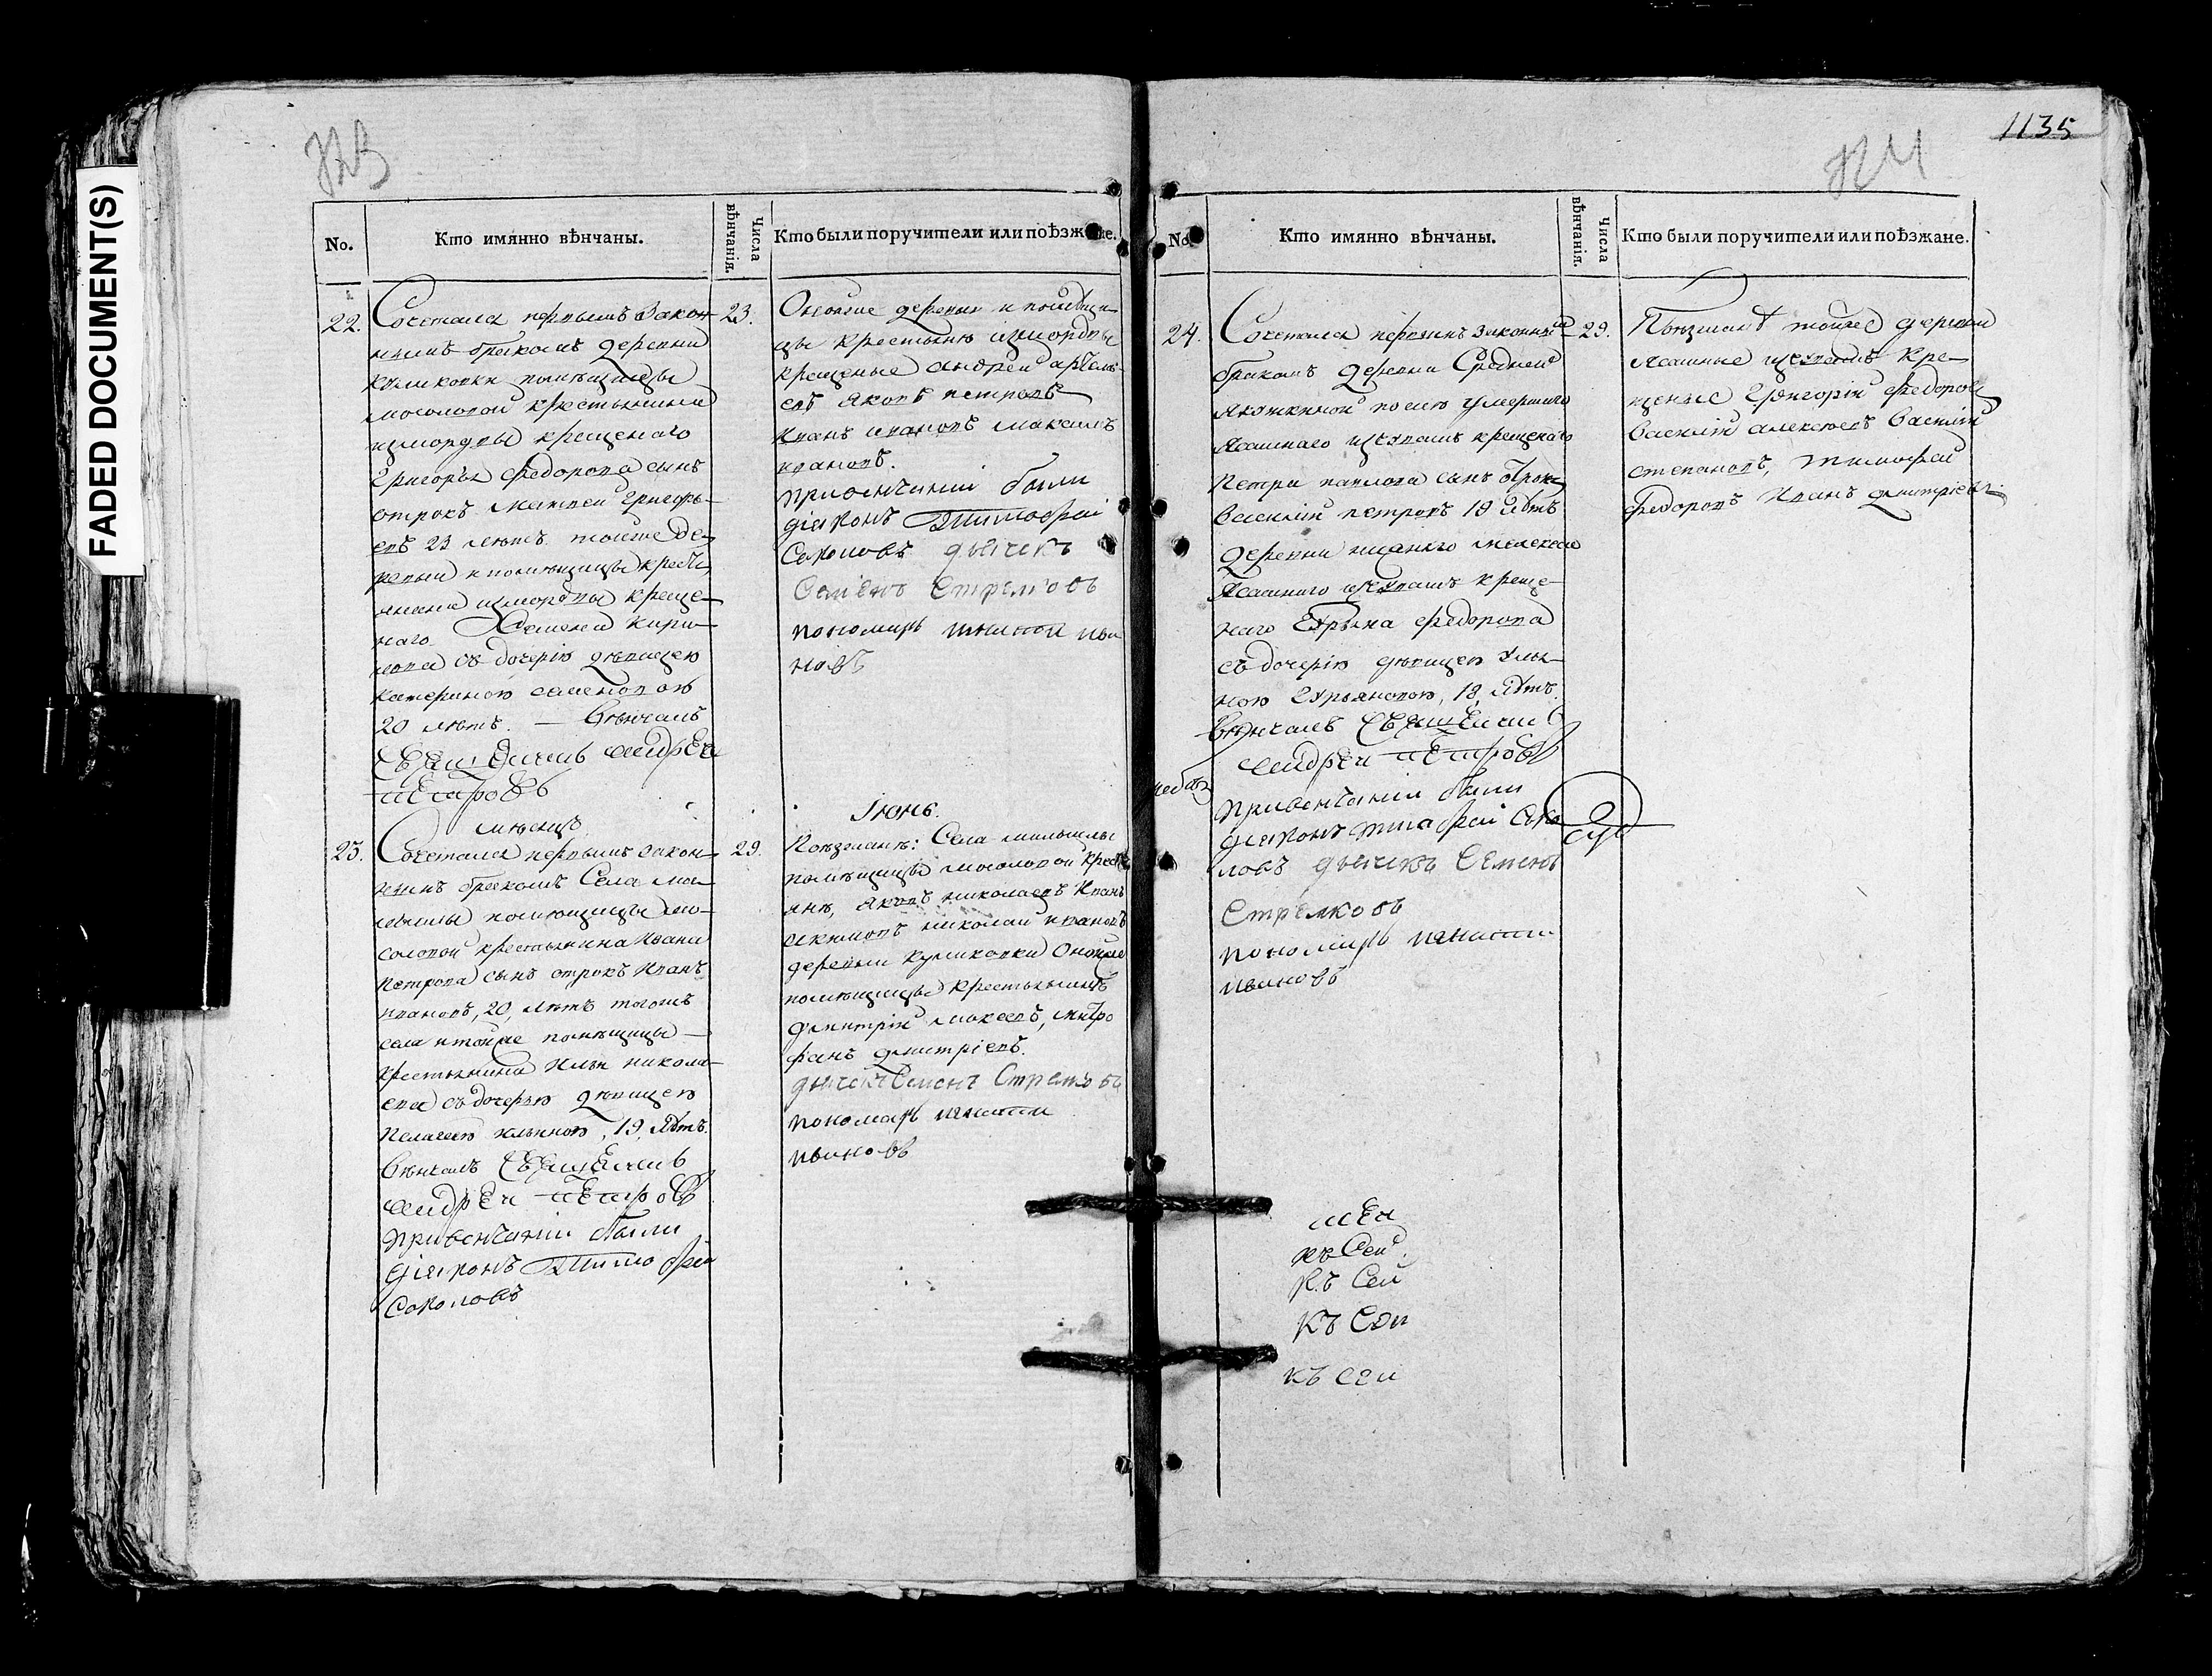 FADED DOCUMENT(S)
1135
No.
Кто имянно вѣнчаны.
Числа вѣнчанія.
Кто были поручители или поѣзжане.
22.
Сочетался первымъ закон-
нымъ бракомъ деревни
куликовки помѣщицы
мосоловой крестьянина
измордвы крещенаго
Григорья Федорова сынъ
отрокъ матвей Григорь-
евъ 23 лѣтъ тойже де-
ревни и помѣщицы кресть
янина измордвы креще-
наго Семена кири-
лова съ дочерію дѣвицею
катериною семеновою
20 лѣтъ. — Вѣнчалъ
священникъ андрей
петровъ
23.
Оной же деревни и помѣщи-
цы крестьяне измордвы
крещеные андрей артемь-
евъ яковъ петровъ
иванъ ивановъ максимъ
ивановъ.
при венчании были
діяконъ Тимофей
Соколовъ дьячекъ
Семенъ Стрелковъ
пономарь игнатий ива
новъ
мѣсяцъ
Іюнь.
23.
Сочетался первымъ закон-
нымъ бракомъ Села ма-
помѣщицы мо-
соловой крестьянина Ивана
Петрова сынъ отрокъ Иванъ
ивановъ, 20, лѣтъ тогожъ
села и тойже помѣщицы —
крестьянина Ильи никола-
ева съ дочерью дѣвицею
Пелагеею ильиною, 19, лѣтъ.
Вѣнчалъ священникъ
андрей петровъ
при венчании были
діяконъ Тимофей
Соколовъ
29.
Поѣзжанѣ: Села
помѣщицы мосоловой кресть
янѣ, Яковъ николаевъ Иванъ
акимовъ николай ивановъ
деревни куликовки Онойже
помѣщицы крестьянинъ
Дмитрій мокеевъ, митро
фанъ дмитріевъ.
дьячекъ Семенъ Стрелковъ
пономарь игнатий
ивановъ
No.
Кто имянно вѣнчаны.
Числа вѣнчанія.
Кто были поручители или поѣзжане.
24.
Сочетался первымъ законнымъ
бракомъ деревни Средней
Якушкиной послѣ умершаго
Ясашнаго изчувашъ крещенаго
Петра павлова сынъ отрокъ
Василій петровъ 19 лѣтъ
деревни нижняго
Ясашнаго изчувашъ креще-
наго Федорова
съ дочерію дѣвицею улья-
ною 18, лѣтъ.
Вѣнчалъ священникъ
андрей петровъ
при венчании были
діяконъ тимофей Соко
ловъ дьячекъ Семенъ
Стрелковъ
пономарь игнатий
ивановъ
29.
Поѣзжанѣ тойже деревни
Ясашные изчувашъ кре-
щеные Григорій Федоровъ
Василій алексеевъ Василій
степановъ, тимофей
федоровъ Иванъ дмитріевъ.
къ Сей
къ Сей
къ Сей
къ сей